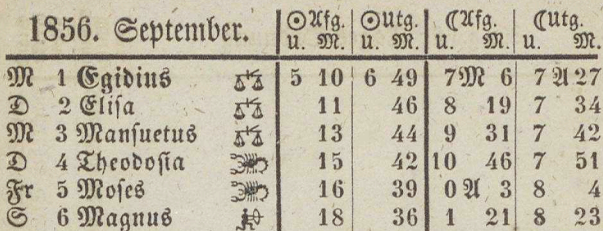 1856. September. ☉Afg. ☉Utg. ☾Afg. ☾Utg.
U. M. U. M. U. M.
M 1 Egidius ♎ 5 10 6 49 7 M 6 7 A 27
D 2 Elisa ♎ 11 46 8 19 7 34
M 3 Mansuetus ♎ 13 44 9 31 7 42
D 4 Theodosia ♏ 15 42 10 46 7 51
Fr 5 Moses ♏ 16 39 0 A 3 8 4
S 6 Magnus ♐ 18 36 1 21 8 23